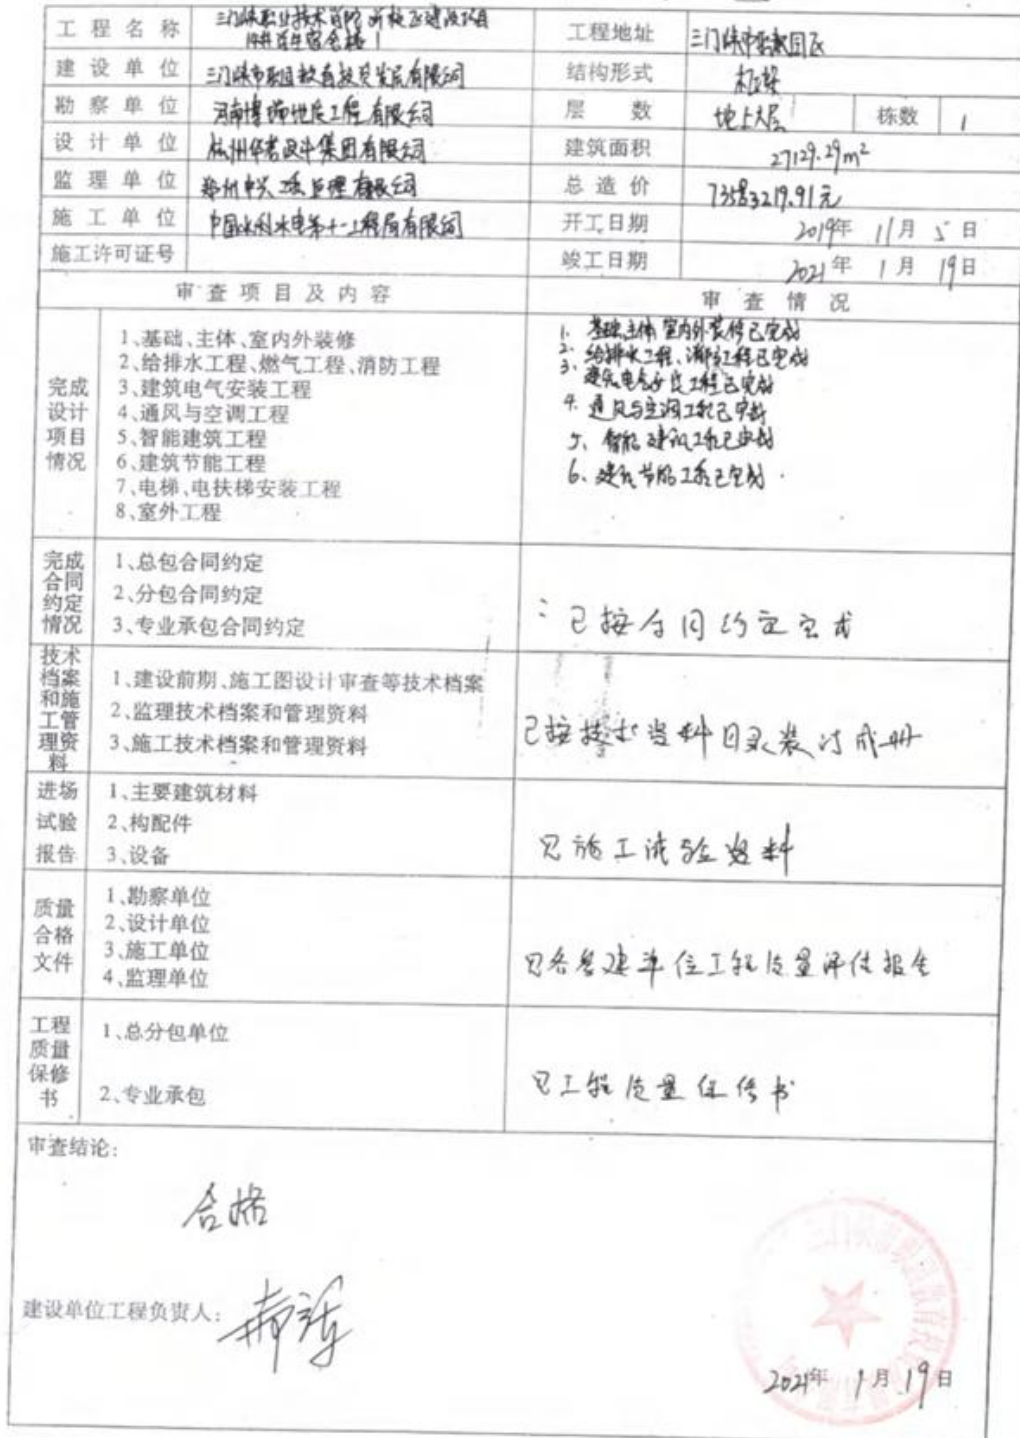 工程名称 三门峡职业技术学院新校区建设项目
14#学生宿舍楼1
工程地址 三门峡市职教园区
建设单位 三门峡市职园教育投资发展有限公司
结构形式 框架
勘察单位 河南博瑞地质工程有限公司
层数 地上六层 栋数 1
设计单位 杭州华若设计集团有限公司
建筑面积 27129.29m²
监理单位 郑州中兴工程监理有限公司
总造价 73583219.91元
施工单位 中国水利水电第十一工程局有限公司
开工日期 2019年11月5日
施工许可证号
竣工日期 2021年1月19日
审查项目及内容 审查情况
完成设计项目情况
1、基础、主体、室内外装修
2、给排水工程、燃气工程、消防工程
3、建筑电气安装工程
4、通风与空调工程
5、智能建筑工程
6、建筑节能工程
7、电梯、电扶梯安装工程
8、室外工程
1. 基础主体室内外装修已完成
2. 给排水工程、消防工程已完成
3. 建筑电气安装工程已完成
4. 通风与空调工程已完成
5、智能建筑工程已完成
6、建筑节能工程已完成.
完成合同约定情况
1、总包合同约定
2、分包合同约定
3、专业承包合同约定
已按合同约定完成
技术档案和施工管理资料
1、建设前期、施工图设计审查等技术档案
2、监理技术档案和管理资料
3、施工技术档案和管理资料
已按技术资料目录装订成册
进场试验报告
1、主要建筑材料
2、构配件
3、设备
见施工试验资料
质量合格文件
1、勘察单位
2、设计单位
3、施工单位
4、监理单位
见各参建单位工程质量评估报告
工程质量保修书
1、总分包单位
2、专业承包
见工程质量保修书
审查结论:
合格
建设单位工程负责人:
2021年1月19日